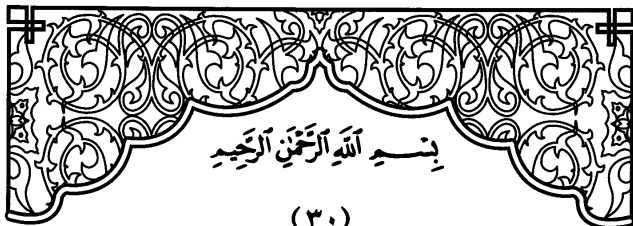 بِسْمِ ٱللَّهِ ٱلرَّحْمَٰنِ ٱلرَّحِيمِ
(٣٠)